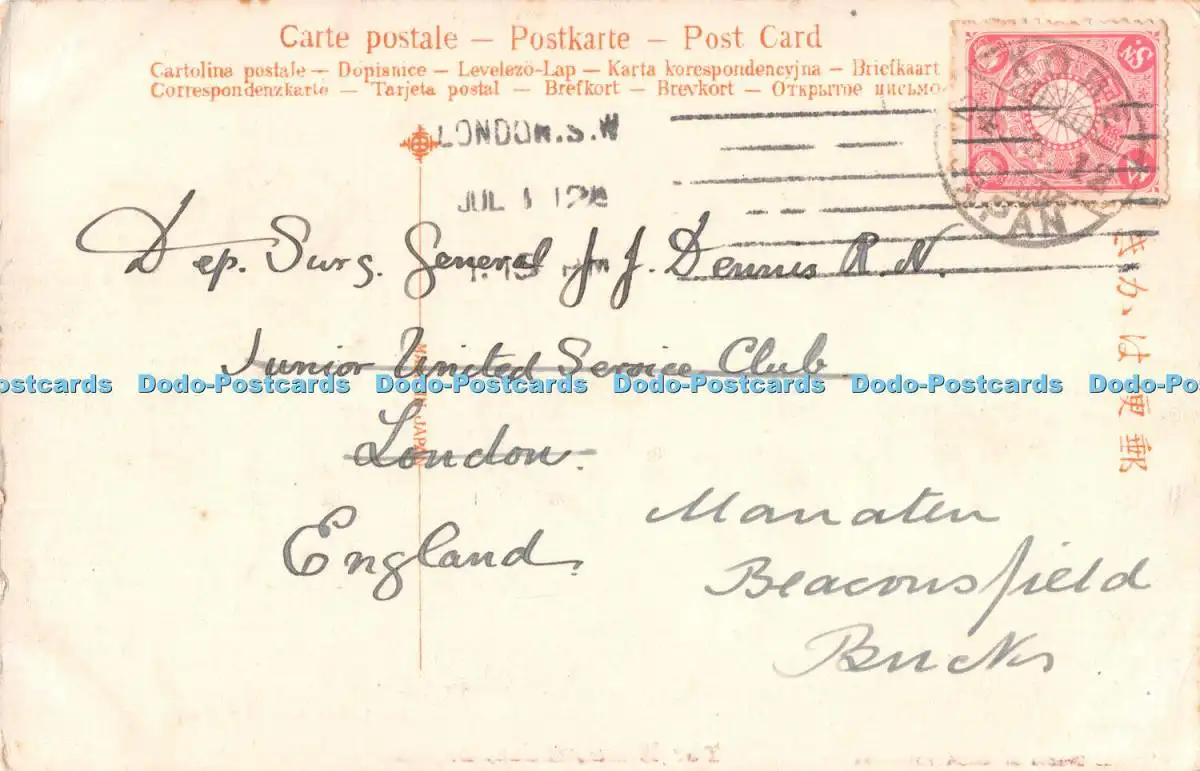 Carte postale – Postkarte – Post Card
Cartolina postale – Dopisnice – Levelezö-Lap – Karta korespondencyjna – Briefkaart
Correspondenzkarte – Tarjeta postal – Brefkort – Brevkort – Открытое письмо
LONDON.S.W
JUL 1 12
JAPAN
12
Dep. Surg. General J. J. Dennis R.N.
Junior United Service Club
London.
England.
Manaten
Beaconsfield
Bucks
JAPAN
きかは便郵
Dodo-Postcards Dodo-Postcards Dodo-Postcards Dodo-Postcards Dodo-Postcards